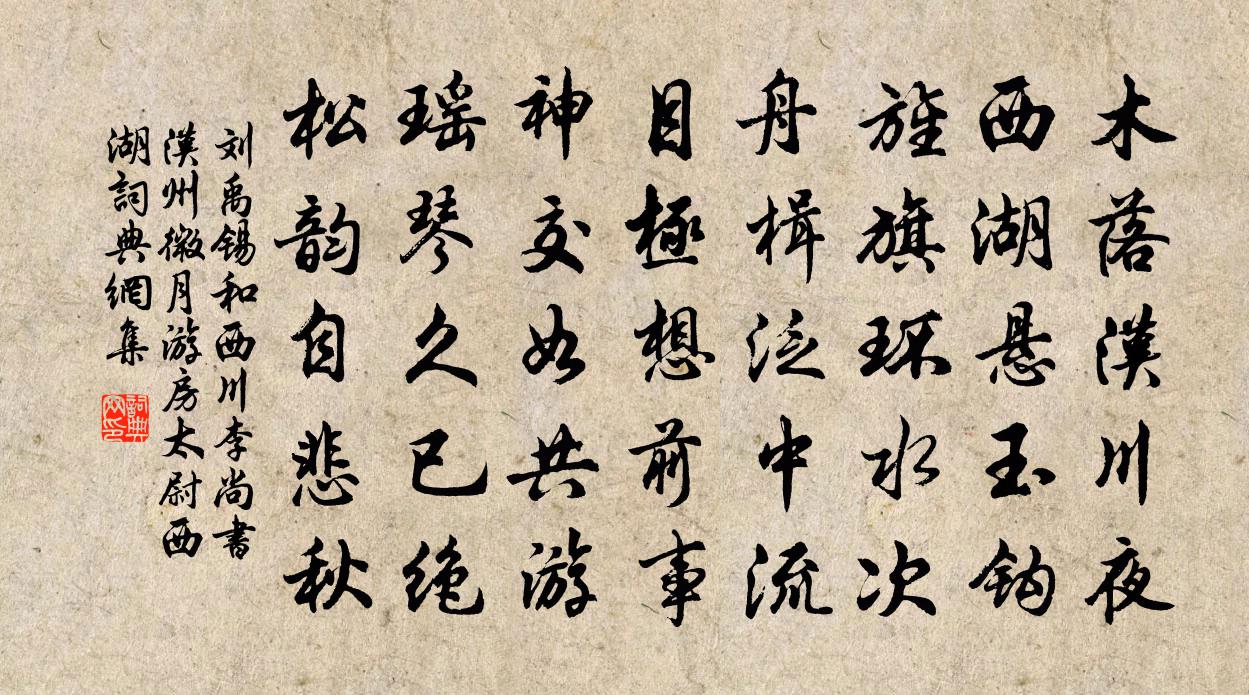 木落漢川夜
西湖悬玉钩
旌旗环水次
舟楫泛中流
目極想前事
神交如共游
瑶琴久已绝
松韵自悲秋
刘禹锡和西川李尚书
漢州微月游房太尉西
湖詞典網集
詞典网印